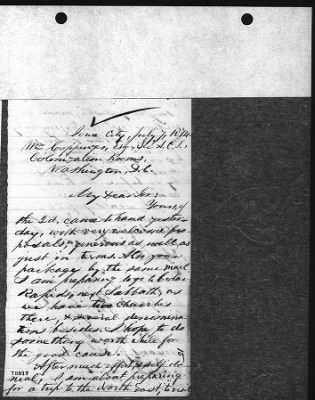 Iowa City, July 4, 1874.
Wm Coppinger, Esq., A.C.S.,
Colonization Rooms,
Washington, D.C.
My dear Sir,
Yours of
the 2d. came to hand yester-
day, with very welcome pro-
posals, generous as well as
just in terms. Also your
package by the same mail.
I am preparing to go to Cedar
Rapids, next Sabbath, as
we have two churches
there & several denomina-
tions besides. I hope to do
something worth while for
the good cause.
After much effort, self de-
nial, I am about preparing
for a trip to the North East, to visit